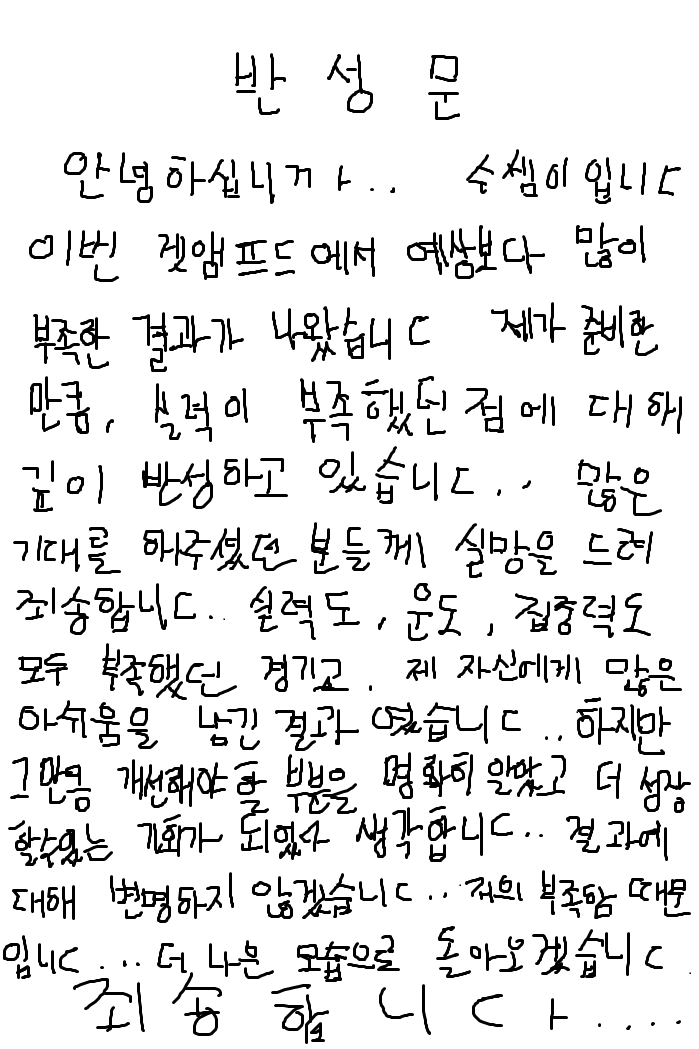 반 성 문
안녕하십니까.. 수쳄이입니다
이번 겟앰프드에서 예상보다 많이
부족한 결과가 나왔습니다 제가 준비한
만큼, 실력이 부족했던 점에 대해
깊이 반성하고 있습니다.. 많은
기대를 해주셨던 분들께 실망을 드려
죄송합니다.. 실력도, 운도, 집중력도
모두 부족했던 경기고, 제 자신에게 많은
아쉬움을 남긴 결과 였습니다.. 하지만
그만큼 개선해야할 부분을 명확히 알았고 더 성장
할수있는 기회가 되었다 생각합니다.. 결과에
대해 변명하지 않겠습니다.. 저의 부족함 때문
입니다... 더 나은 모습으로 돌아오겠습니다.
죄송합니다....